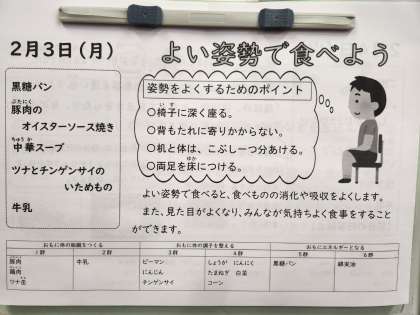 2月3日(月)
よい姿勢で食べよう
黒糖パン
豚肉の
オイスターソース焼き
中華スープ
ツナとチンゲンサイの
いためもの
牛乳
姿勢をよくするためのポイント
○椅子に深く座る。
○背もたれに寄りかからない。
○机と体は、こぶし一つ分あける。
○両足を床につける。
よい姿勢で食べると、食べものの消化や吸収をよくします。
また、見た目がよくなり、みんなが気持ちよく食事をすること
ができます。
おもに体の組織をつくる おもに体の調子を整える おもにエネルギーとなる
1群 2群 3群 4群 5群 6群
豚肉 牛乳 ピーマン しょうが にんにく 黒糖パン 綿実油
鶏肉 にんじん たまねぎ 白菜
ツナ缶 チンゲンサイ コーン